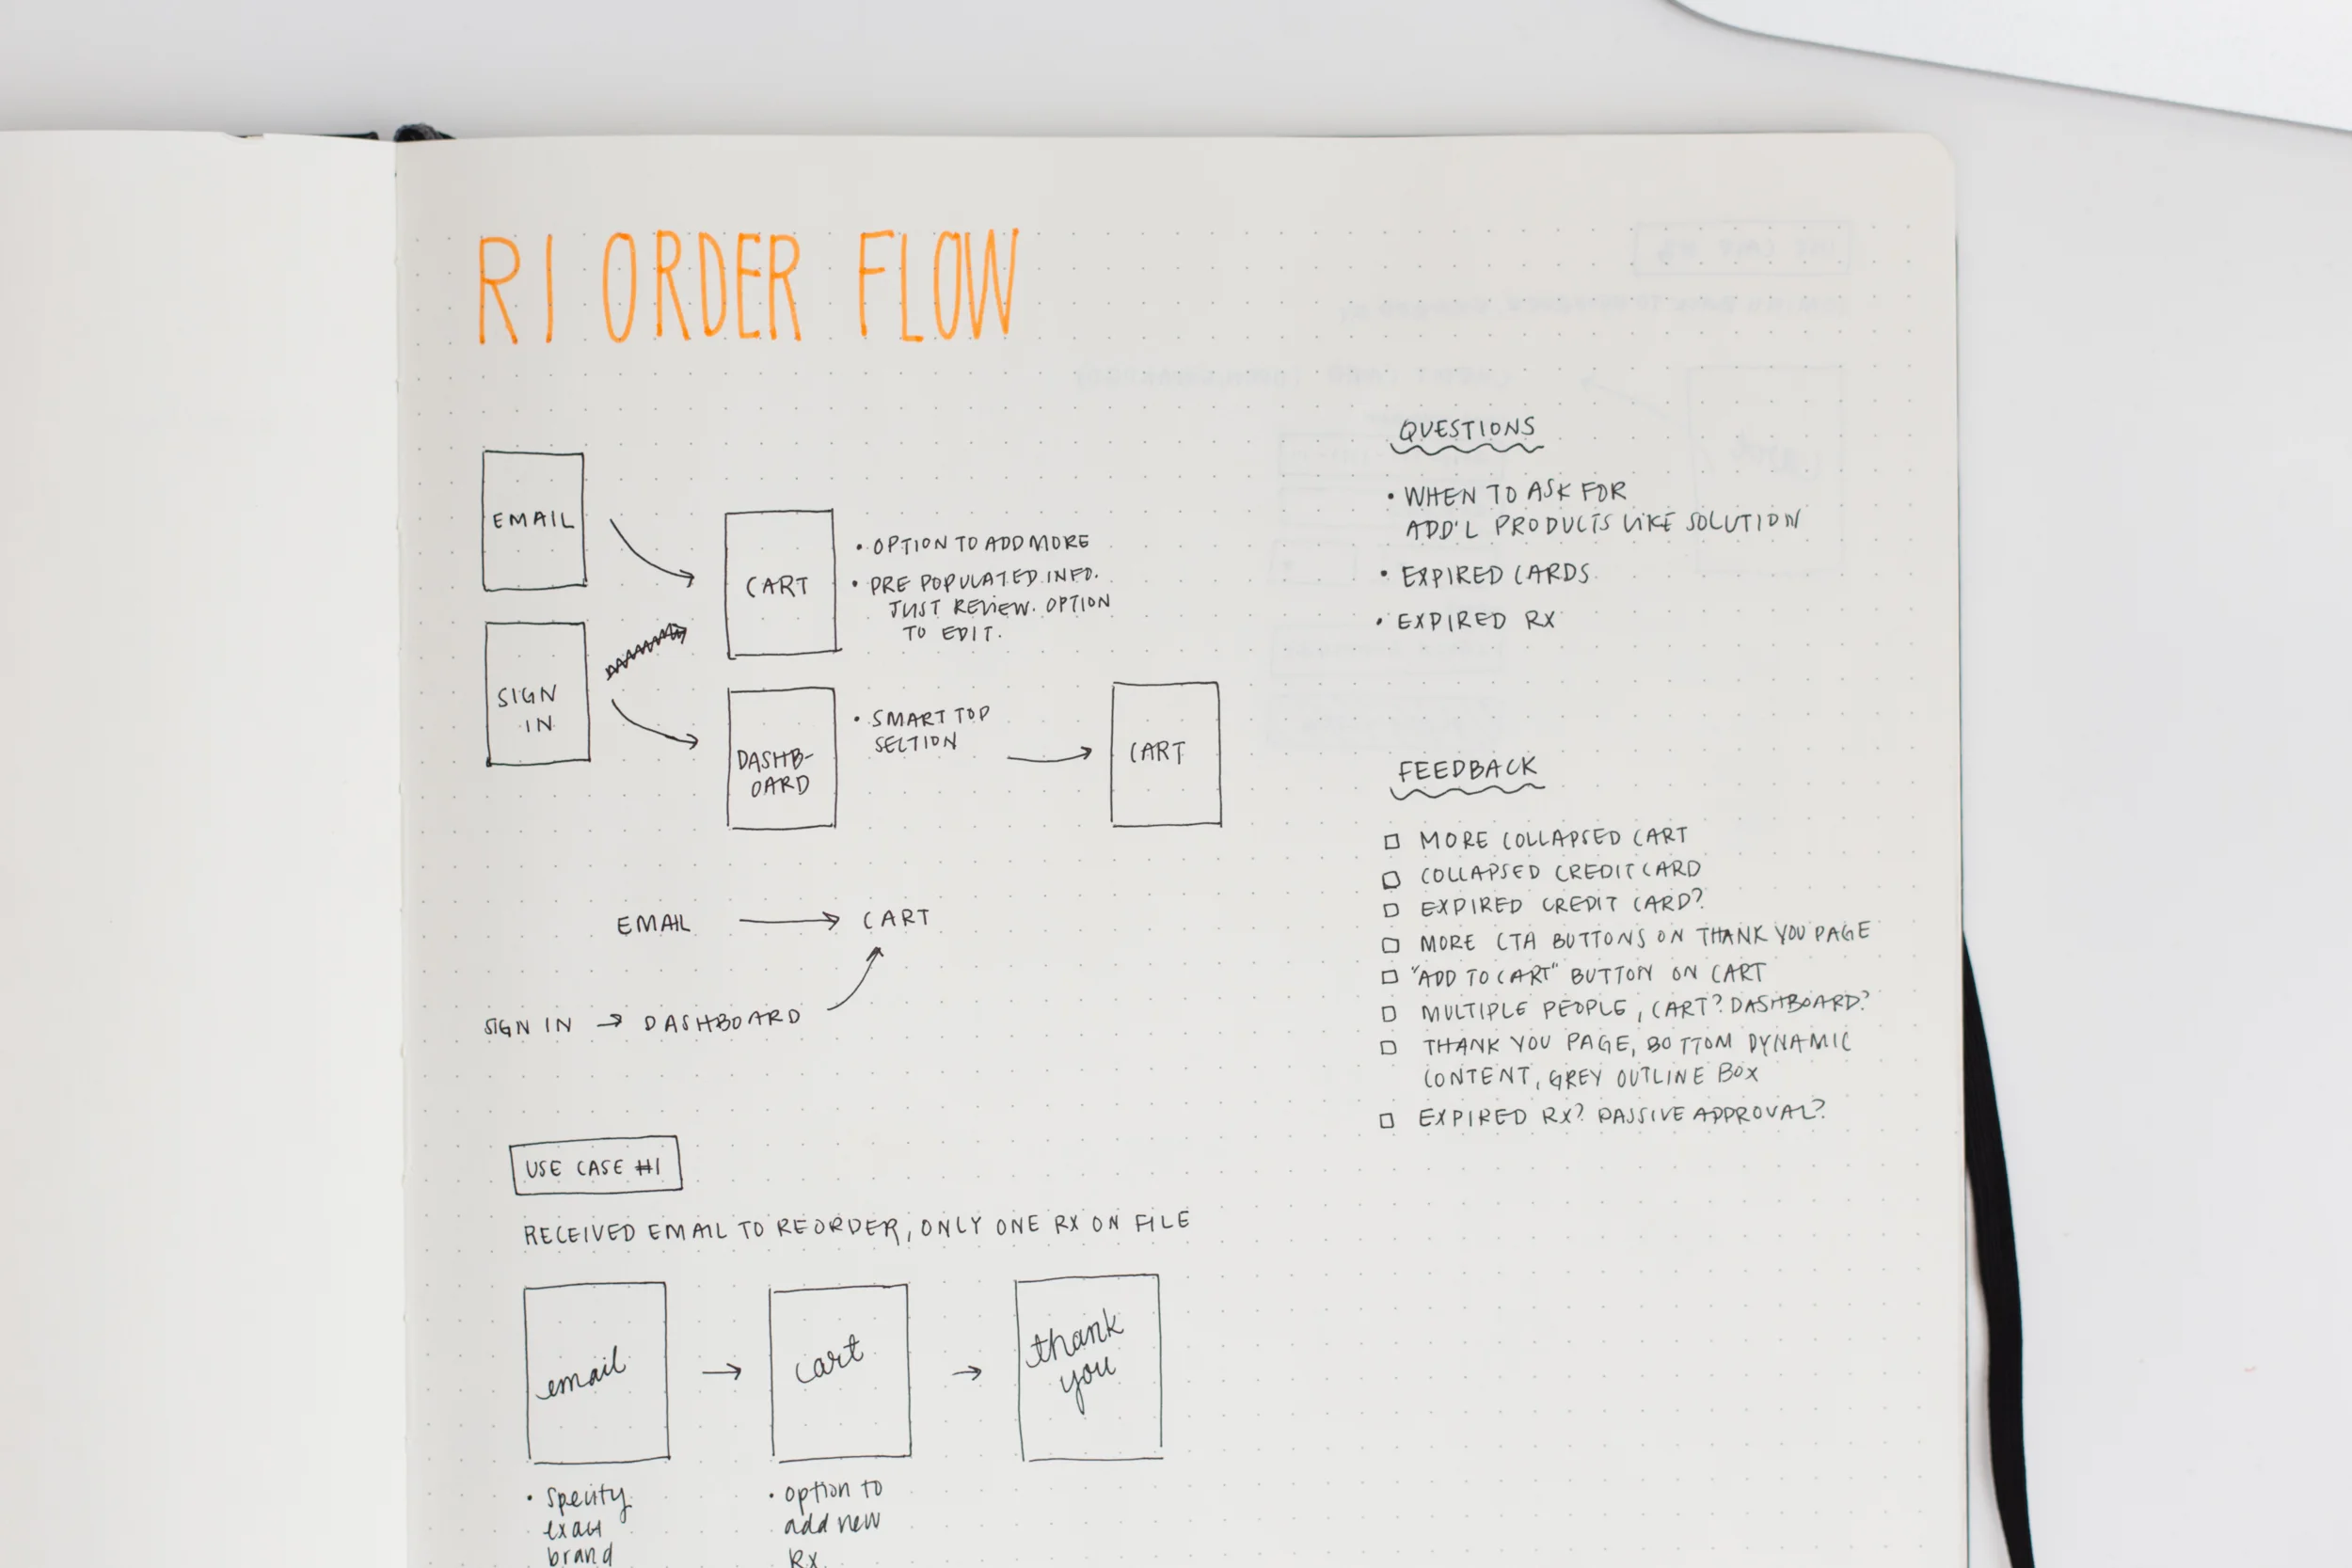 R1 ORDER FLOW
EMAIL
CART
• OPTION TO ADD MORE
• PRE POPULATED INFO.
JUST REVIEW. OPTION
TO EDIT.
SIGN
IN
DASHB-
OARD
• SMART TOP
SECTION
CART
EMAIL → CART
SIGN IN → DASHBOARD
USE CASE #1
RECEIVED EMAIL TO REORDER, ONLY ONE RX ON FILE
email → cart → thank
you
• Specify
exact
brand
• option to
add new
Rx
QUESTIONS
• WHEN TO ASK FOR
ADD'L PRODUCTS LIKE SOLUTION
• EXPIRED CARDS
• EXPIRED RX
FEEDBACK
□ MORE COLLAPSED CART
□ COLLAPSED CREDIT CARD
□ EXPIRED CREDIT CARD?
□ MORE CTA BUTTONS ON THANK YOU PAGE
□ "ADD TO CART" BUTTON ON CART
□ MULTIPLE PEOPLE, CART? DASHBOARD?
□ THANK YOU PAGE, BOTTOM DYNAMIC
CONTENT, GREY OUTLINE BOX
□ EXPIRED RX? PASSIVE APPROVAL?